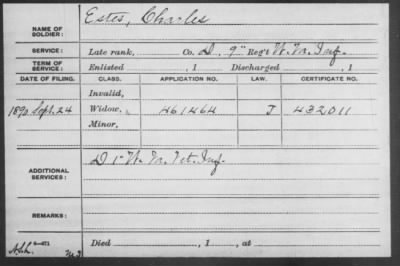 NAME OF SOLDIER: Estes, Charles
SERVICE: Late rank, Co. D, 9" Reg't W. Va. Inf.
TERM OF SERVICE: Enlisted , 1 Discharged , 1
DATE OF FILING. CLASS. APPLICATION NO. LAW. CERTIFICATE NO.
Invalid,
1890 Sept. 24 Widow, 461464 J 432011
Minor,
ADDITIONAL SERVICES: D 1" W. Va. Vet. Inf.
REMARKS:
Died , 1 , at